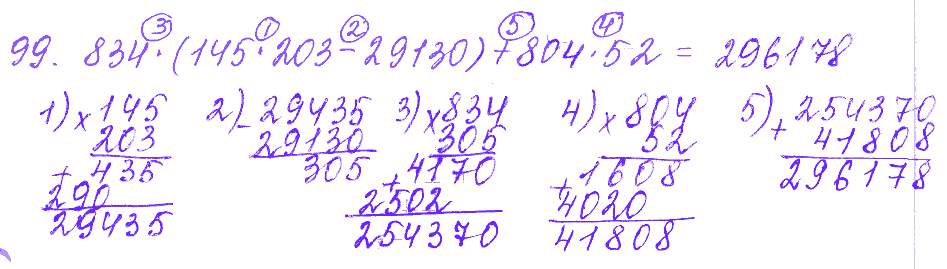 ③ ① ② ⑤ ④
99. 834·(145·203-29130)+804·52 = 296178
1) × 145 2) - 29435 3) × 834 4) × 804 5) + 254370
203 29130 305 52 41808
+ 435 305 + 4170 + 1608 296178
290 2502 4020
29435 254370 41808